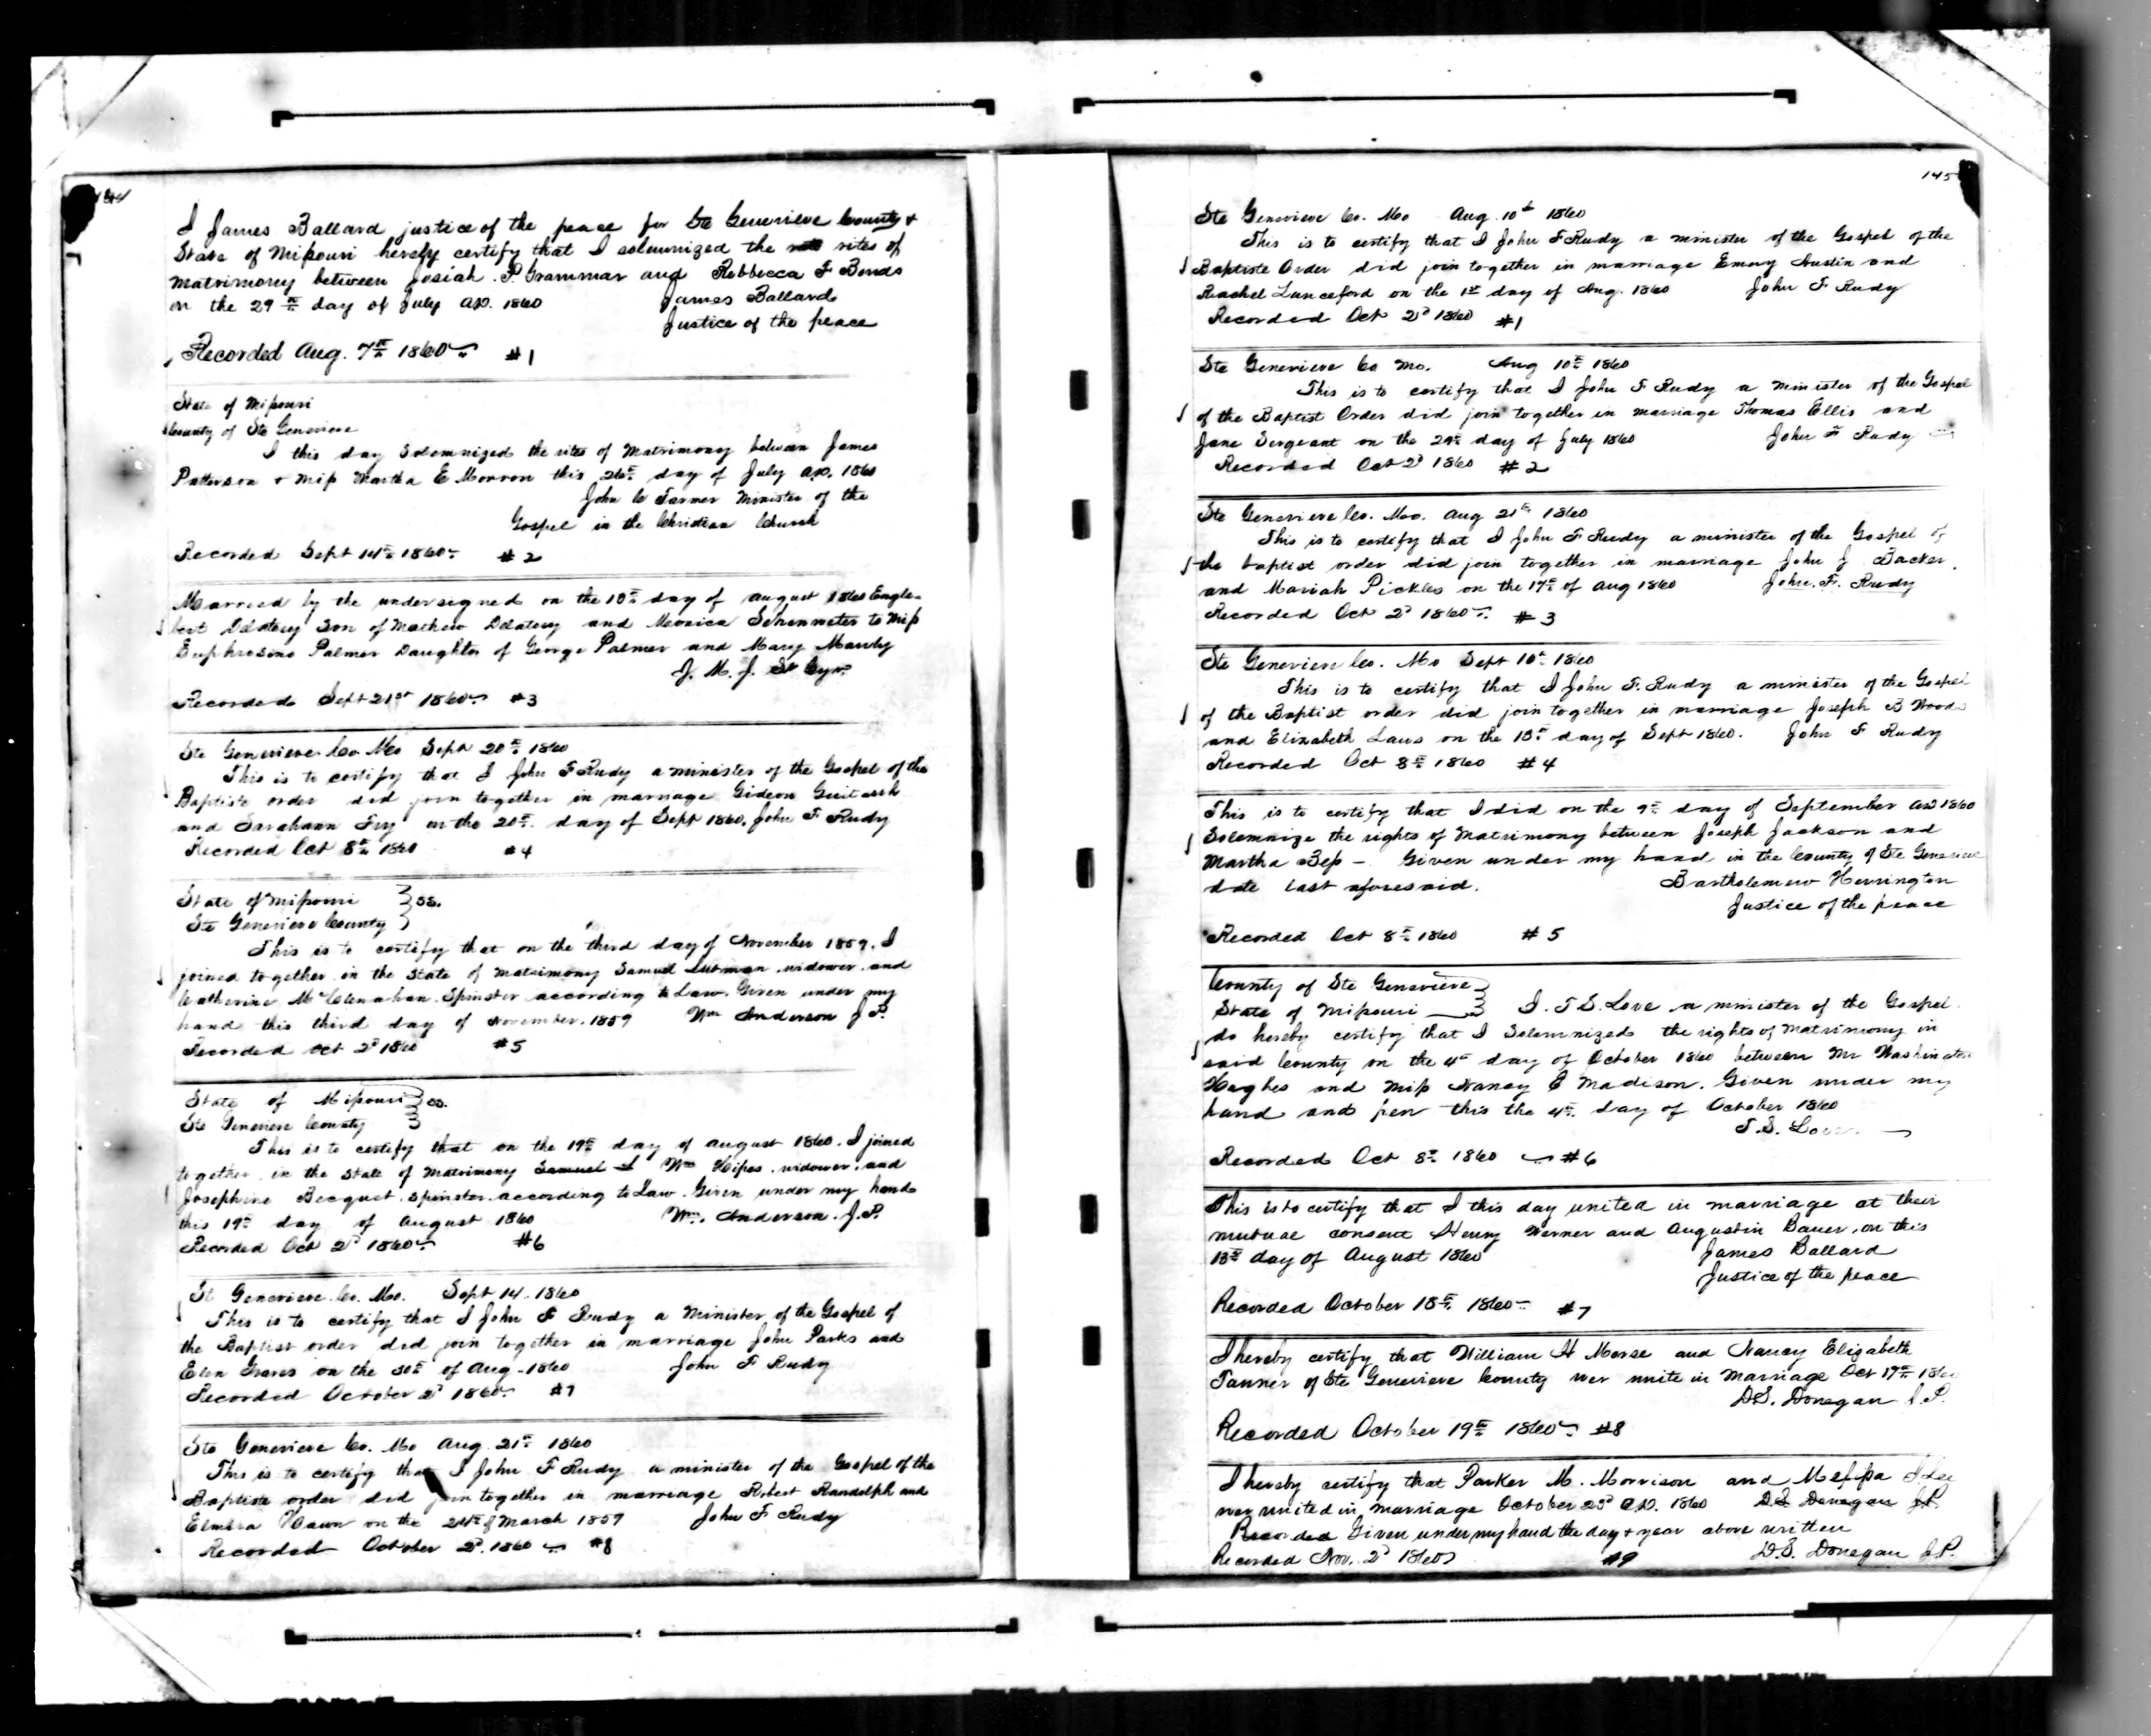 144
I James Ballard justice of the peace for Ste Genevieve County &
State of Missouri hereby certify that I solemnized the rites of
matrimony between Josiah P. Grammar and Rebbecca F Bonds
on the 29th day of July A.D. 1860 James Ballard
Justice of the peace
Recorded Aug. 7th 1860 #1
State of Missouri
County of Ste Genevieve
I this day Solemnized the rites of Matrimony between James
Patterson & Miss Martha E Morron this 26th day of July A.D. 1860
John C Farmer Minister of the
Gospel in the Christian Church
Recorded Sept 14th 1860 #2
Married by the undersigned on the 13th day of August 1860 Engle-
bert son of Mathew and Monica to Miss
Euphrosine Palmer Daughter of George Palmer and Mary Manly
J. M. J. St Cyr
Recorded Sept 21st 1860 #3
Ste Genevieve Co Mo Sept 20th 1860
This is to certify that I John F Rudy a minister of the Gospel of the
Baptiste order did join together in marriage Gideon
and Sarahann Fry on the 20th day of Sept 1860. John F Rudy
Recorded Oct 8th 1860 #4
State of Missouri } ss.
Ste Genevieve County }
This is to certify that on the third day of November 1859. I
joined together in the State of matrimony Samuel widower and
Catherine McClenahan Spinster according to Law. Given under my
hand this third day of November. 1859 Wm Anderson J P.
Recorded Oct 2d 1860 #5
State of Missouri } ss.
Ste Genevieve County }
This is to certify that on the 19th day of August 1860. I joined
together in the State of Matrimony Samuel Wm Hipes widower and
Josephine Becquet spinster according to Law. Given under my hand
this 19th day of August 1860 Wm. Anderson. J.P.
Recorded Oct 2d 1860 #6
St Genevieve Co. Mo. Sept 14. 1860
This is to certify that I John F Rudy a Minister of the Gospel of
the Baptist order did join together in marriage John Parks and
Elen Graves on the 30th of Aug. 1860 John F Rudy
Recorded October 2d 1860 #7
Ste Genevieve Co. Mo Aug 21st 1860
This is to certify that I John F Rudy a minister of the Gospel of the
Baptiste order did join together in marriage Robert Randolph and
on the 24th of March 1859 John F Rudy
Recorded October 2d. 1860 #8
145
Ste Genevieve Co. Mo Aug. 10th 1860
This is to certify that I John F Rudy a minister of the Gospel of the
Baptiste Order did join together in marriage Emery Austin and
Rachel Lunceford on the 1st day of Aug. 1860 John F Rudy
Recorded Oct 2d 1860 #1
Ste Genevieve Co Mo. Aug 10th 1860
This is to certify that I John F Rudy a minister of the Gospel
of the Baptist Order did join together in marriage Thomas Ellis and
Jane Sergeant on the 29th day of July 1860 John F Rudy
Recorded Oct 2d 1860 #2
Ste Genevieve Co. Mo. Aug 21st 1860
This is to certify that I John F Rudy a minister of the Gospel of
the baptist order did join together in marriage John J Backer
and Mariah Pickles on the 17th of Aug 1860 John. F. Rudy
Recorded Oct 2d 1860 #3
Ste Genevieve Co. Mo Sept 10th 1860
This is to certify that I John F. Rudy a minister of the Gospel
of the Baptist order did join together in marriage Joseph B Woods
and Elizabeth Laws on the 13th day of Sept 1860. John F Rudy
Recorded Oct 8th 1860 #4
This is to certify that I did on the 9th day of September AD 1860
Solemnize the rights of Matrimony between Joseph Jackson and
Martha Bess - Given under my hand in the County of Ste Genevieve
date last aforesaid. Bartholemew Herrington
Justice of the peace
Recorded Oct 8th 1860 #5
County of Ste Genevieve }
State of Missouri } I. T. S. Love a minister of the Gospel
do hereby certify that I Solemnized the rights of Matrimony in
said County on the 4th day of October 1860 between Mr Washington
Hughes and Miss Nancy E Madison. Given under my
hand and pen this the 4th day of October 1860
T. S. Love
Recorded Oct 8th 1860 #6
This is to certify that I this day united in marriage at their
mutual consent Henry Werner and Augustin Bauer, on this
13th day of August 1860 James Ballard
Justice of the peace
Recorded October 18th 1860 #7
I hereby certify that William H Morse and Nancy Elizabeth
Tanner of Ste Genevieve County wer unite in Marriage Oct 17th 1860
D.S. Donegan J.P.
Recorded October 19th 1860 #8
I hereby certify that Parker M. Morrison and Lee
wer united in marriage October 25th A.D. 1860 D.S Donegan J.P.
Recorded Given under my hand the day & year above written
Recorded Nov. 2d 1860 #9 D.S. Donegan J.P.